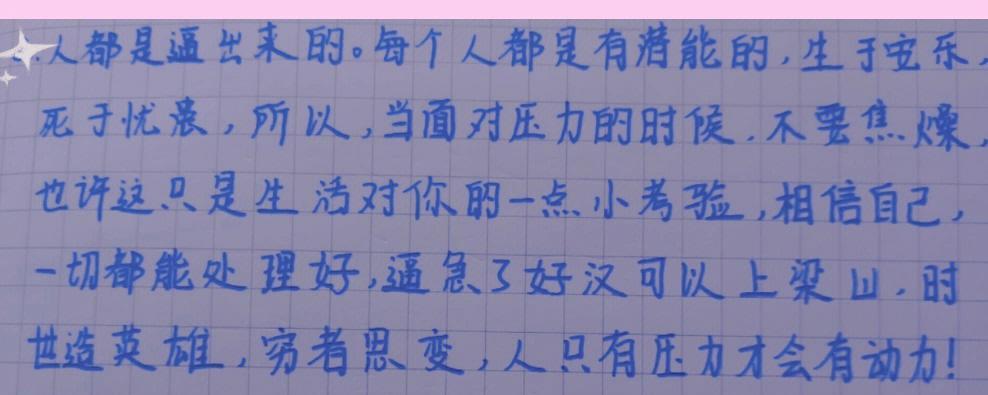 人都是逼出来的。每个人都是有潜能的,生于安乐,
死于忧患,所以,当面对压力的时候,不要焦燥,
也许这只是生活对你的一点小考验,相信自己,
一切都能处理好,逼急了好汉可以上梁山,时
世造英雄,穷者思变,人只有压力才会有动力!